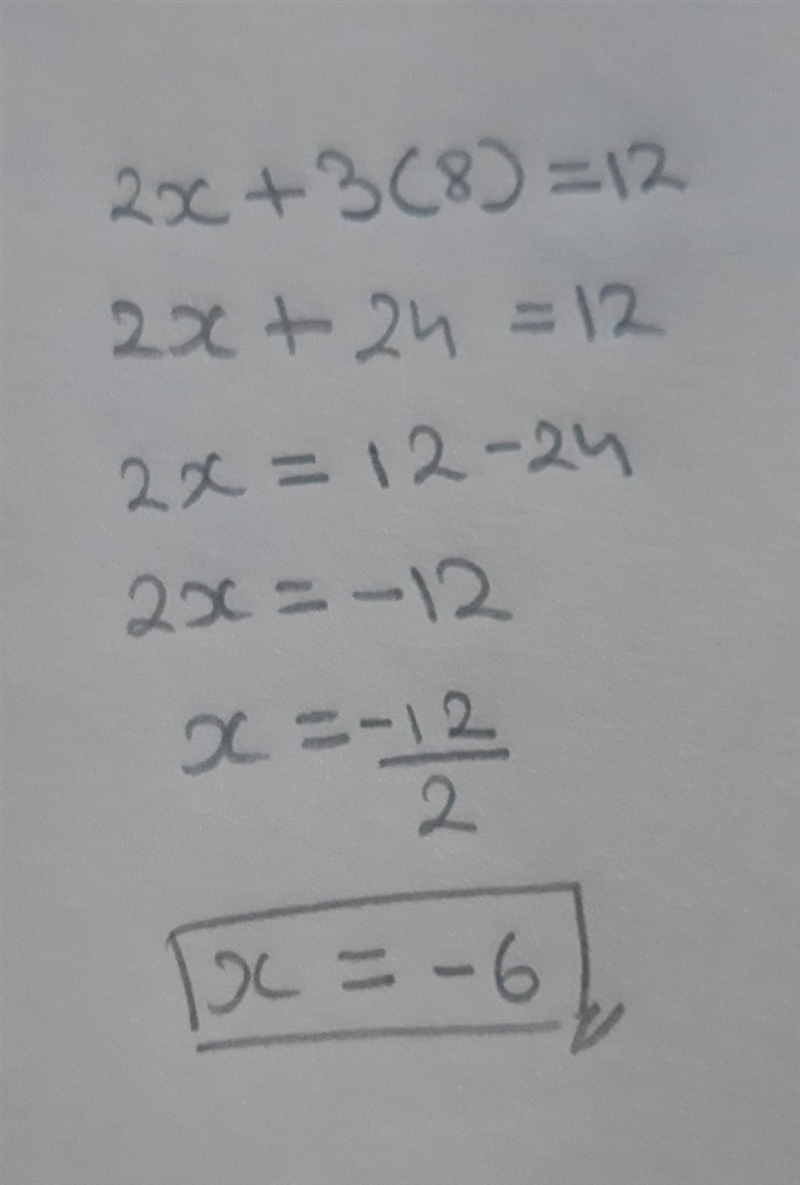 2x + 3(8) = 12
2x + 24 = 12
2x = 12 - 24
2x = -12
x = -12
2
x = -6